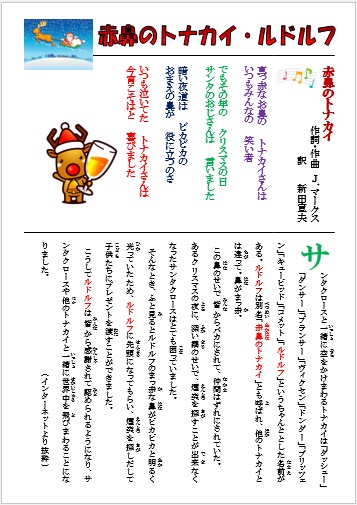 赤鼻のトナカイ・ルドルフ
赤鼻のトナカイ
作詞・作曲 J.マークス
訳 新田宣夫
真っ赤なお鼻の トナカイさんは
いつもみんなの 笑い者
でもその年の クリスマスの日
サンタのおじさんは 言いました
暗い夜道は ピカピカの
おまえの鼻が 役に立つのさ
いつも泣いてた トナカイさんは
今宵こそはと 喜びました
サンタクロースと一緒に空をかけまわるトナカイは「ダッシャー」
「ダンサー」「プランサー」「ヴィクセン」「ドンダー」「ブリッツェ
ン」「キューピッド」「コメット」「ルドルフ」というちゃんとした名前が
ある。ルドルフは別名「赤鼻のトナカイ」とも呼ばれ、他のトナカイと
は違って、鼻がまっ赤。
この鼻のせいで、皆からバカにされて、仲間はずれにされていた。
あるクリスマスの夜に、深い霧のせいで、煙突を探すことが出来なく
なったサンタクロースはとても困っていました。
そんなとき、ふと見るとルドルフのまっ赤な鼻がピカピカと明るく
光っていたため、ルドルフに先頭になってもらい、煙突を探しだして
子供たちにプレゼントを渡すことができました。
こうしてルドルフは、皆から感謝されて認められるようになり、サ
ンタクロースや他のトナカイと一緒に世界中を飛びまわることにな
りました。
(インターネットより抜粋)